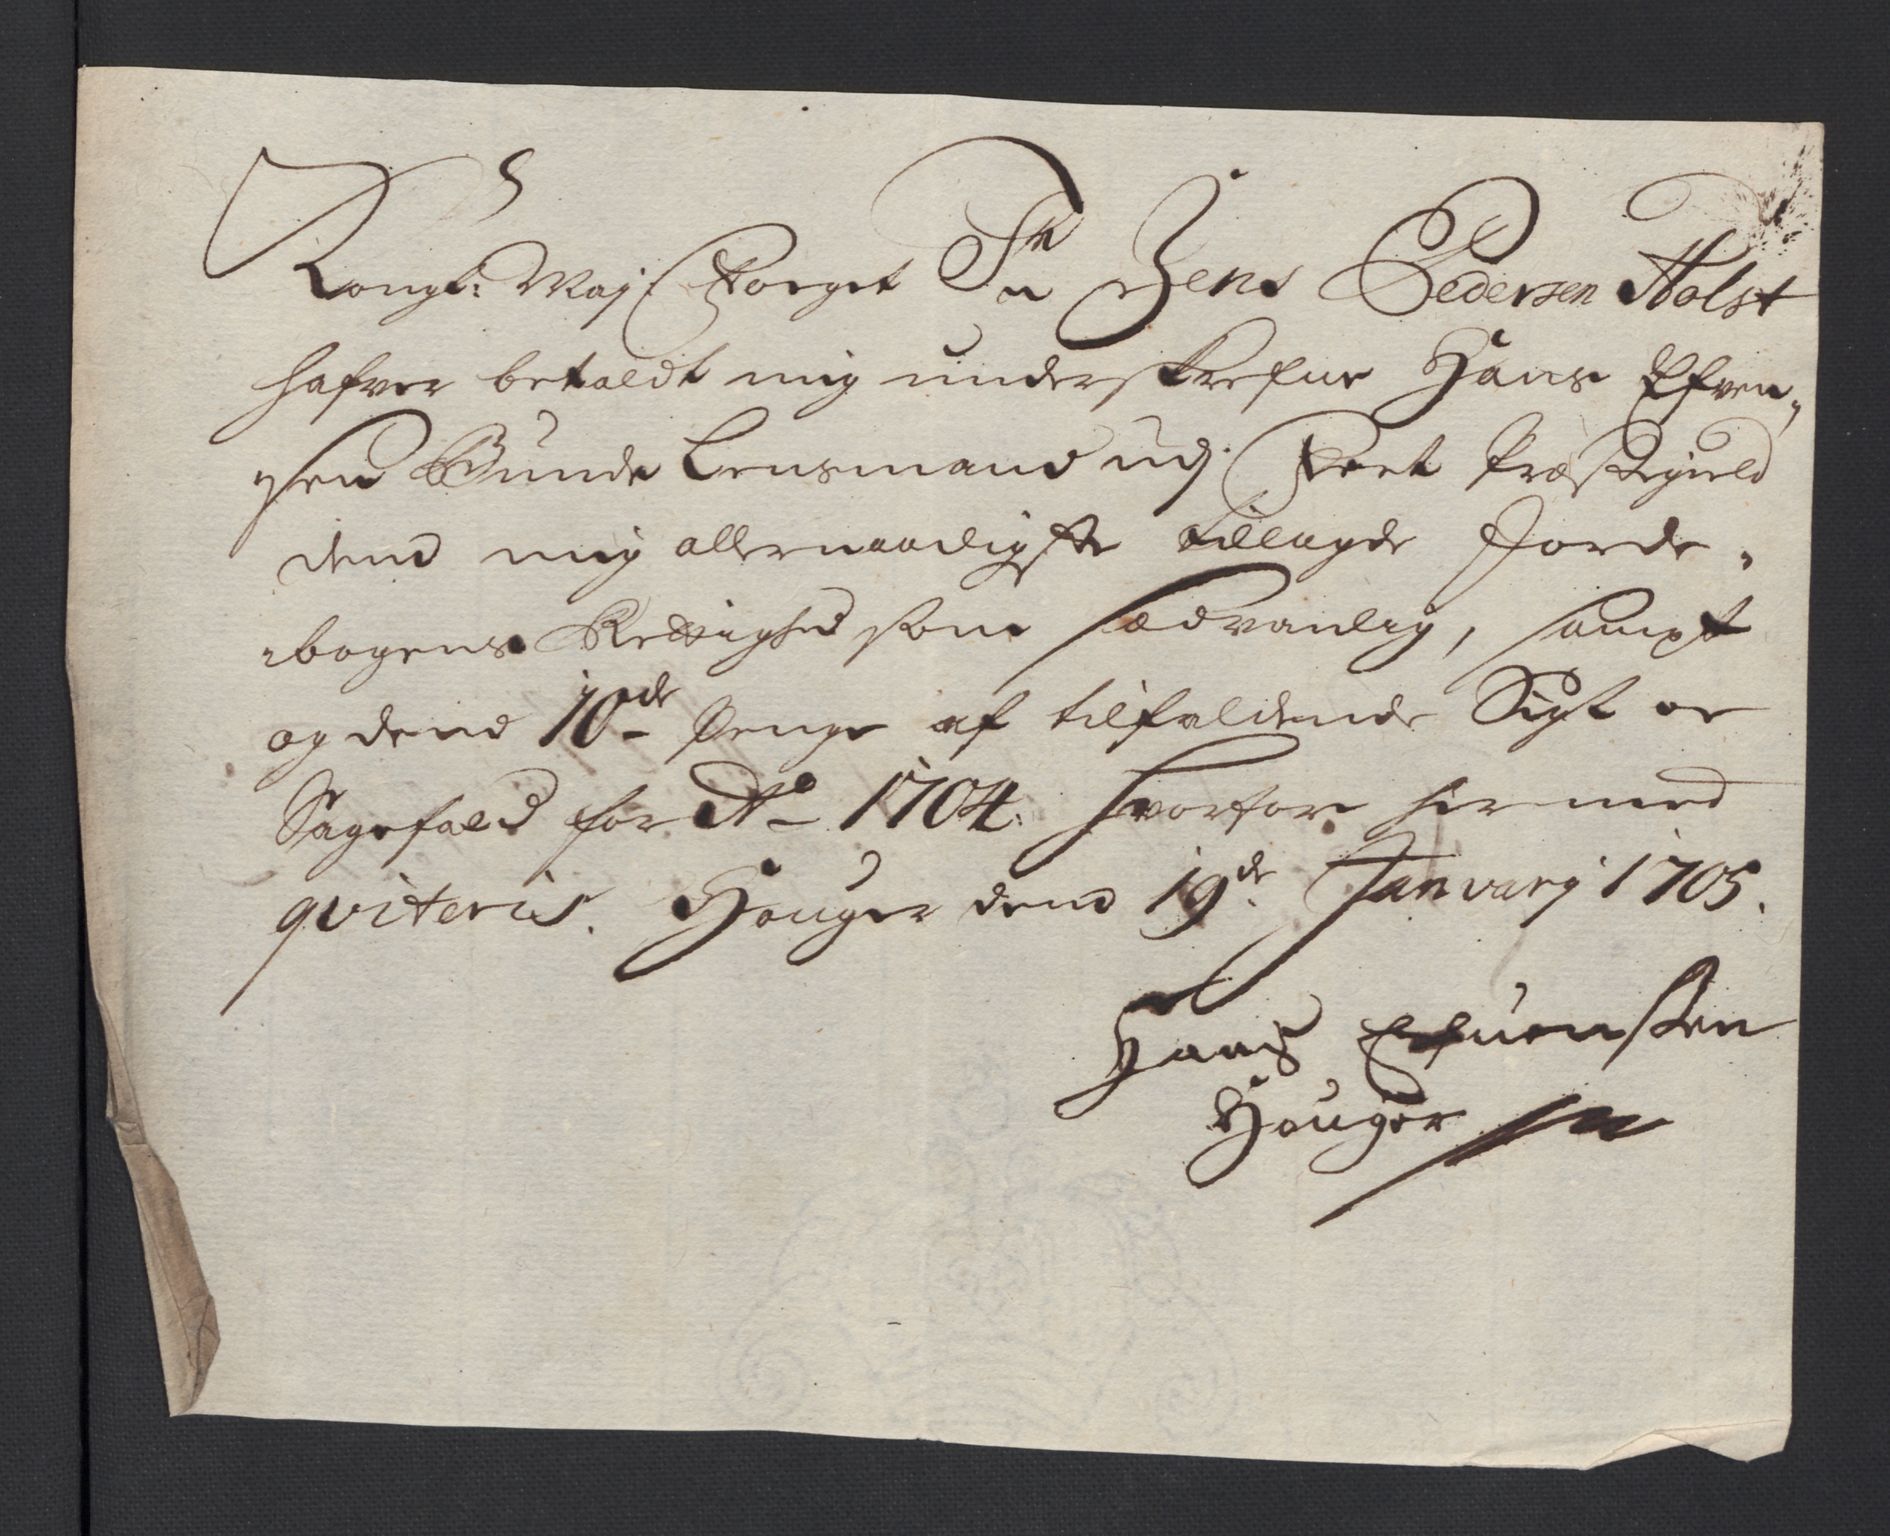 Kongl: Maj: Foeget Sr Jens Pedersen Holst
hafver betaldt mig underskrefne Hans Efven,,
sen Bunde Lensmand udj Næet Præstegield
dend mig allernaadigste tillagde Jorde,,
bogens Rettighed som sædvanlig, sampt
og dend 10de Penge af tilfaldende Sigt oc
Sagefald for Ao 1704. Hvorfore hermed
qviteris. Houger dend 19de Januarj 1705.
Hans Efuensen
Houger